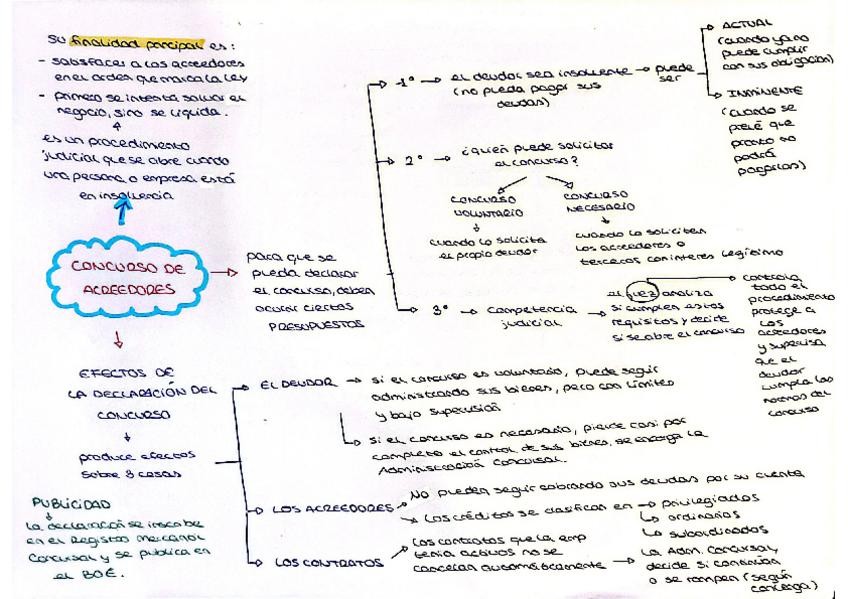 Su finalidad parcipal es:
- satisfacer a los acreedores
en el orden que marca la ley
- primero se intenta salvar el
negocio, si no se liquida.
es un procedimiento
judicial que se abre cuando
una persona o empresa está
en insolvencia
CONCURSO DE
ACREEDORES
para que se
pueda declarar
el concurso, deben
ocurrir ciertos
PRESUPUESTOS
1º → el deudor sea insolvente → puede
ser
(no pueda pagar sus
deudas)
ACTUAL
(cuando ya no
puede cumplir
con sus obligación)
INMINENTE
(cuando se
prevé que
pronto no
podrá
pagarlas)
2º → ¿quién puede solicitar
el concurso?
CONCURSO
VOLUNTARIO
cuando lo solicita
el propio deudor
CONCURSO
NECESARIO
cuando lo soliciten
los acreedores o
terceros con interés legítimo
3º → Competencia
judicial
el juez analiza
si cumplen estos
requisitos y decide
si se abre el concurso
controla
todo el
procedimiento
protege a
los
acreedores
y supervisa
que el
deudor
cumpla las
normas del
concurso
EFECTOS DE
LA DECLARACIÓN DEL
CONCURSO
produce efectos
sobre 3 cosas
EL DEUDOR → si el concurso es voluntario, puede seguir
administrando sus bienes, pero con límites
y bajo supervisión
si el concurso es necesario, pierde casi por
completo el control de sus bienes, se encarga la
Administración Concursal.
LOS ACREEDORES
No pueden seguir cobrando sus deudas por su cuenta
Los créditos se clasifican en → privilegiados
ordinarios
subordinados
LOS CONTRATOS
Los contratos que la emp
tenia activos no se
cancelan automáticamente
La Adm. Concursal,
decide si continúan
o se rompen (según
convenga)
PUBLICIDAD
La declaración se inscribe
en el Registro Mercantil
Concursal y se publica en
el BOE.